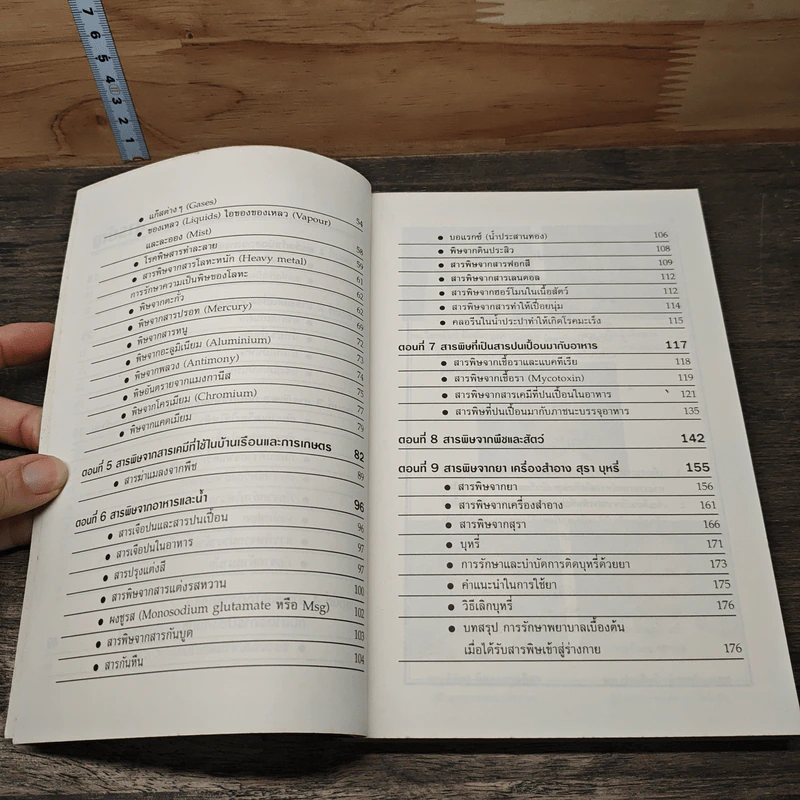 7 6 5 4 3 2 1
● แก๊สต่าง ๆ (Gases)
● ของเหลว (Liquids) ไอของของเหลว (Vapour)
และละออง (Mist) 54
● โรคพิษสารทำละลาย 58
● สารพิษจากสารโลหะหนัก (Heavy metal) 59
การรักษาความเป็นพิษของโลหะ 61
● พิษจากตะกั่ว 62
● พิษจากสารปรอท (Mercury) 62
● พิษจากสารหนู 69
● พิษจากอะลูมิเนียม (Aluminium) 72
● พิษจากพลวง (Antimony) 73
● พิษอันตรายจากแมงกานีส 74
● พิษจากโครเมียม (Chromium) 75
● พิษจากแคดเมียม 77
79
ตอนที่ 5 สารพิษจากสารเคมีที่ใช้ในบ้านเรือนและการเกษตร 82
● สารฆ่าแมลงจากพืช 89
ตอนที่ 6 สารพิษจากอาหารและน้ำ 96
● สารเจือปนและสารปนเปื้อน 96
● สารเจือปนในอาหาร 97
● สารปรุงแต่งสี 97
● สารพิษจากสารแต่งรสหวาน 100
● ผงชูรส (Monosodium glutamate หรือ Msg) 102
● สารพิษจากสารกันบูด 103
● สารกันหืน 104
● บอแรกซ์ (น้ำประสานทอง) 106
● พิษจากดินประสิว 108
● สารพิษจากสารฟอกสี 109
● สารพิษจากสารเลนดอล 112
● สารพิษจากฮอร์โมนในเนื้อสัตว์ 112
● สารพิษจากสารทำให้เปื่อยนุ่ม 114
● คลอรีนในน้ำประปาทำให้เกิดโรคมะเร็ง 115
ตอนที่ 7 สารพิษที่เป็นสารปนเปื้อนมากับอาหาร 117
● สารพิษจากเชื้อราและแบคทีเรีย 118
● สารพิษจากเชื้อรา (Mycotoxin) 119
● สารพิษจากสารเคมีที่ปนเปื้อนในอาหาร 121
● สารพิษที่ปนเปื้อนมากับภาชนะบรรจุอาหาร 135
ตอนที่ 8 สารพิษจากพืชและสัตว์ 142
ตอนที่ 9 สารพิษจากยา เครื่องสำอาง สุรา บุหรี่ 155
● สารพิษจากยา 156
● สารพิษจากเครื่องสำอาง 161
● สารพิษจากสุรา 166
● บุหรี่ 171
● การรักษาและบำบัดการติดบุหรี่ด้วยยา 173
● คำแนะนำในการใช้ยา 175
● วิธีเลิกบุหรี่ 176
● บทสรุป การรักษาพยาบาลเบื้องต้น
เมื่อได้รับสารพิษเข้าสู่ร่างกาย 176